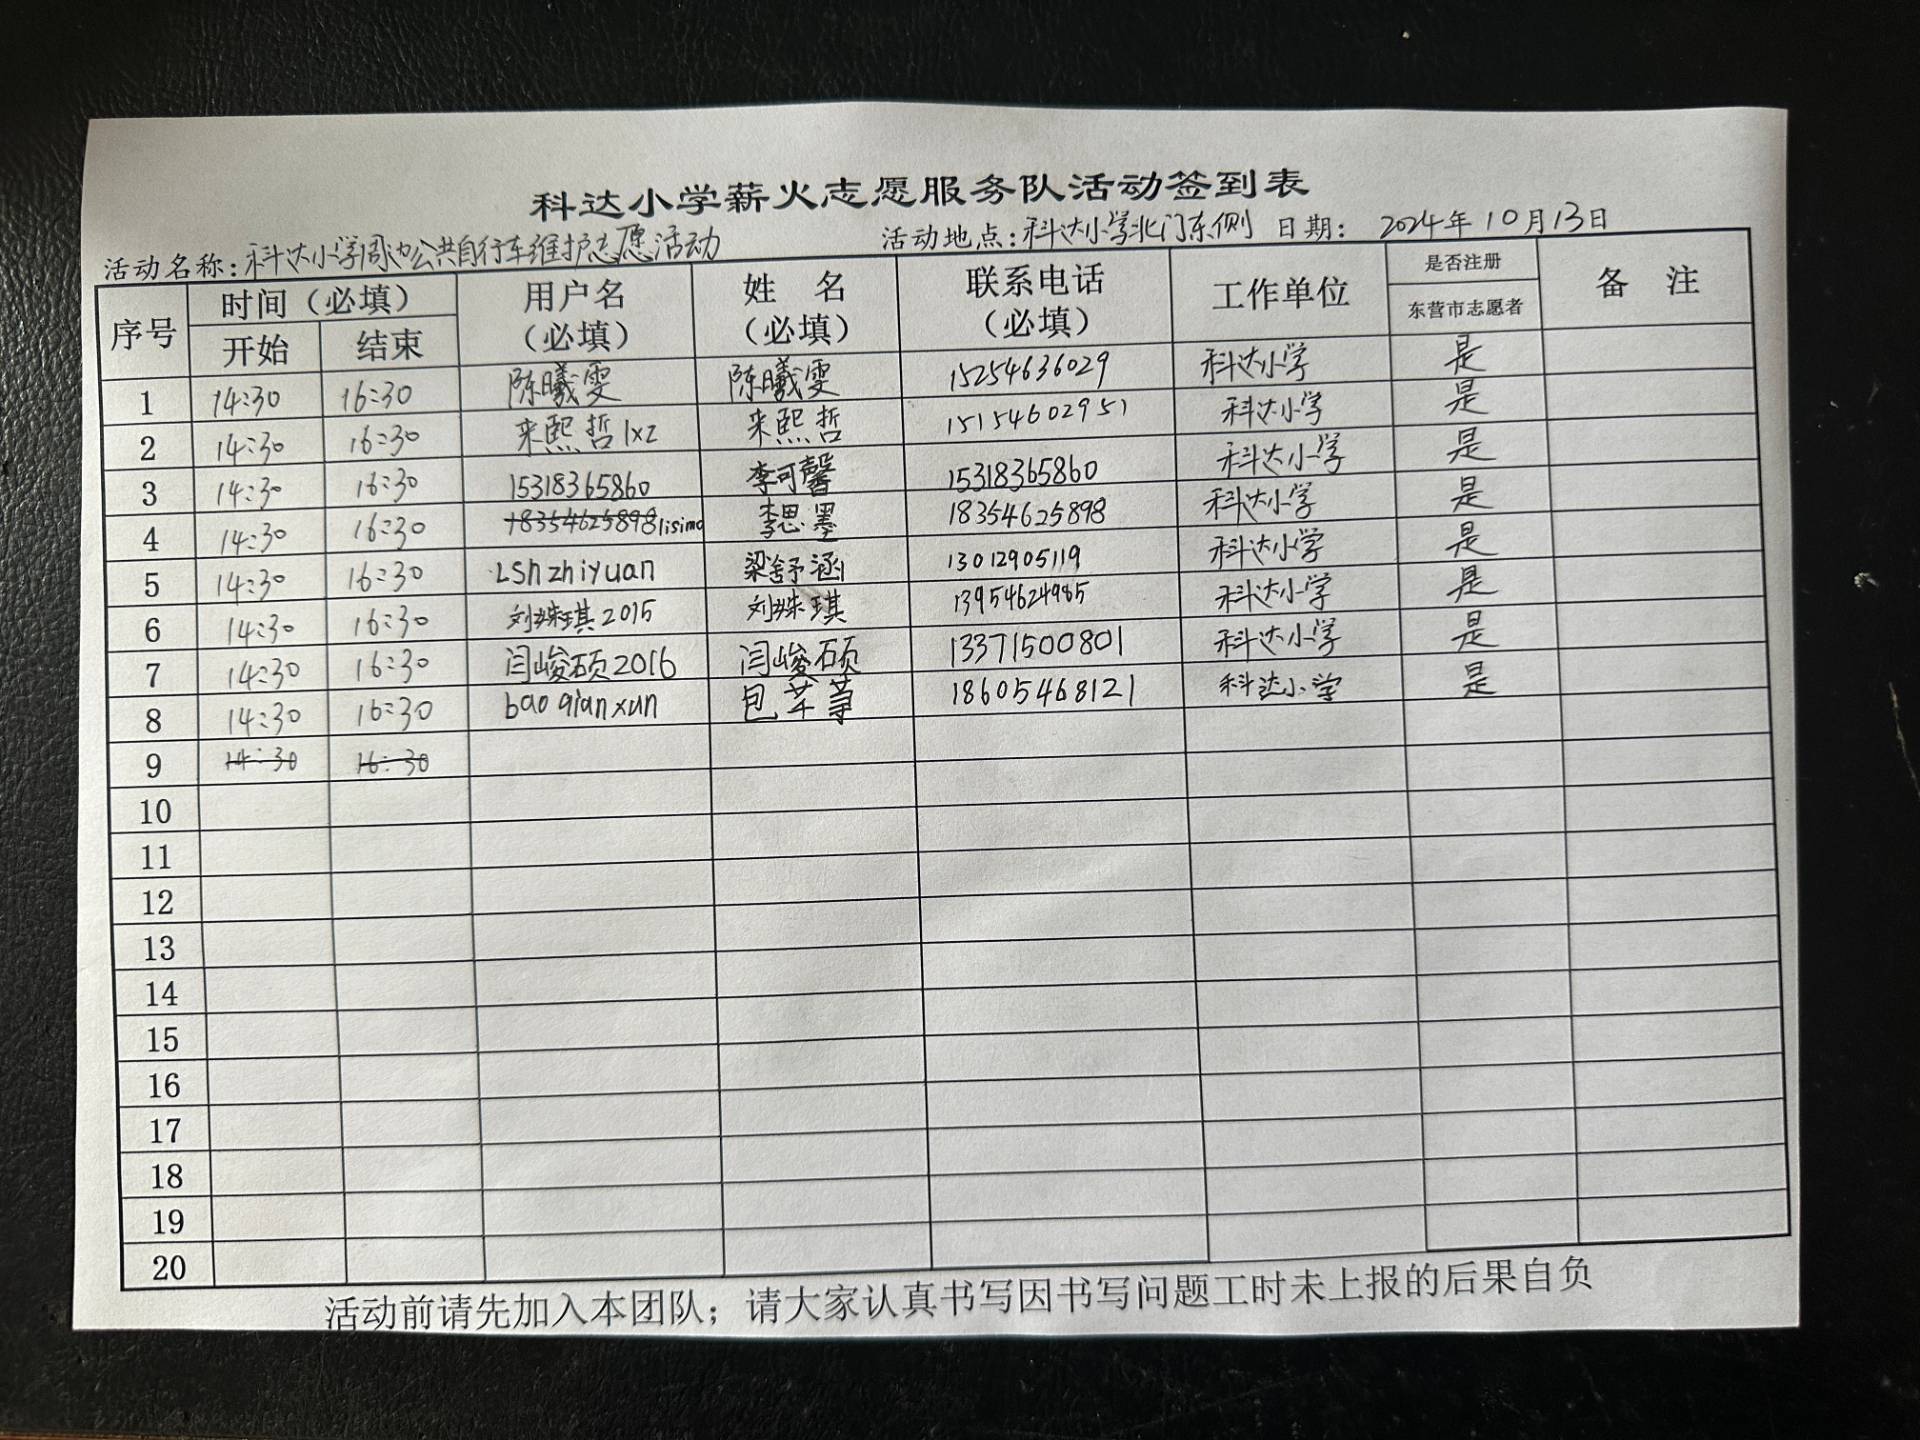 科达小学薪火志愿服务队活动签到表
活动名称：科达小学周边公共自行车维护志愿活动 活动地点：科达小学北门东侧 日期： 2024年10月13日
序号 时间（必填） 用户名（必填） 姓 名（必填） 联系电话（必填） 工作单位 是否注册 备 注
开始 结束 东营市志愿者
1 14:30 16:30 陈曦雯 陈曦雯 15254636029 科达小学 是
2 14:30 16:30 来熙哲lxz 来熙哲 15154602951 科达小学 是
3 14:30 16:30 15318365860 李可馨 15318365860 科达小学 是
4 14:30 16:30 18354625898 lisimo 李思墨 18354625898 科达小学 是
5 14:30 16:30 LShzhiyuan 梁舒涵 13012905119 科达小学 是
6 14:30 16:30 刘姝琪2015 刘姝琪 13954624985 科达小学 是
7 14:30 16:30 闫峻硕2016 闫峻硕 13371500801 科达小学 是
8 14:30 16:30 baoqianxun 包芊荨 18605468121 科达小学 是
9 14:30 16:30
10
11
12
13
14
15
16
17
18
19
20
活动前请先加入本团队；请大家认真书写因书写问题工时未上报的后果自负